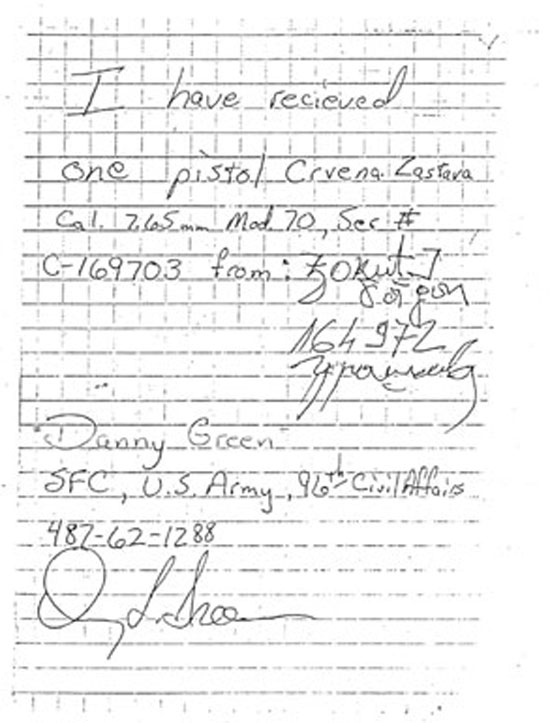 I have recieved
one pistol Crvena Zastava
Cal. 7.65mm Mod. 70, Ser #
C-169703 from:
164972
"Danny Green"
SFC, U.S. Army, 96th Civil Affairs
487-62-1288